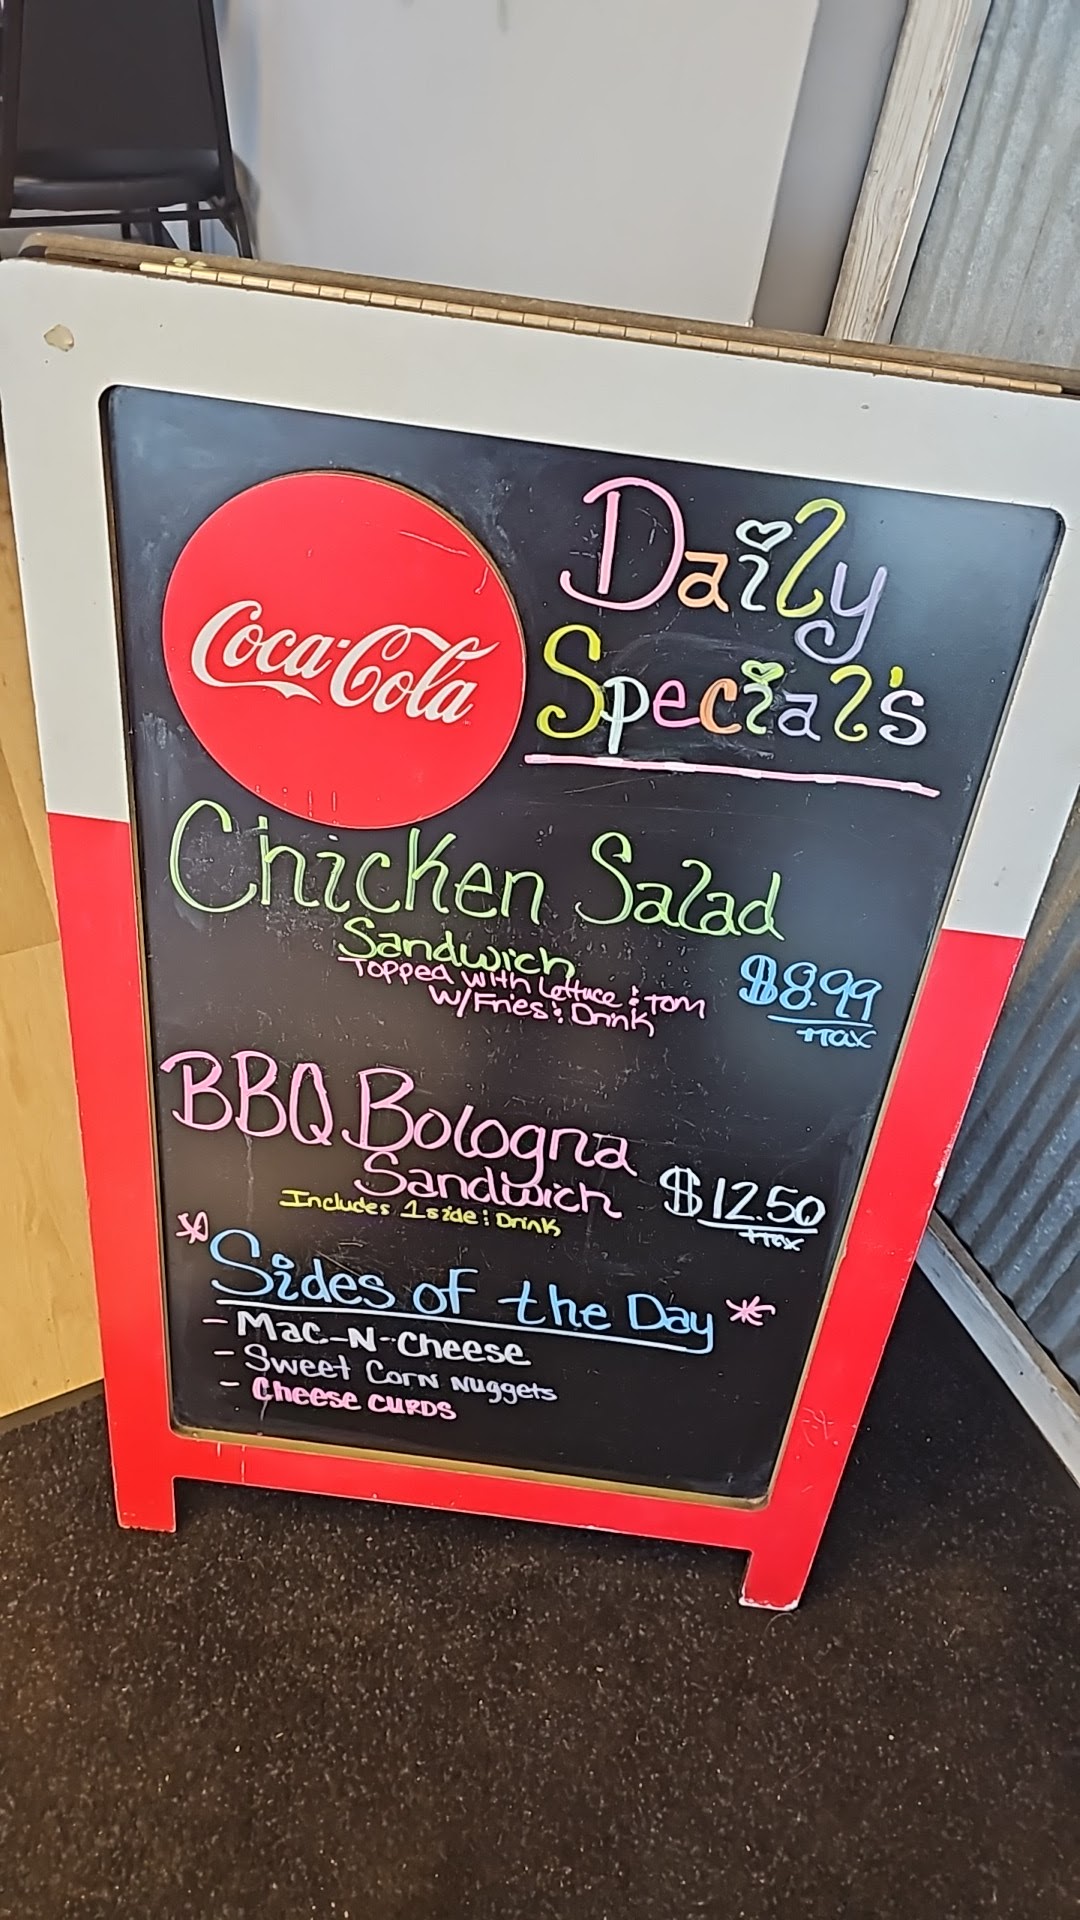 Coca-Cola
Daily
Special's
Chicken Salad
Sandwich
Topped with Lettuce & Tom
W/Fries & Drink
$8.99
+tax
BBQ Bologna
Sandwich
Includes 1 side & Drink
$12.50
+tax
*Sides of the Day*
- Mac-N-Cheese
- Sweet Corn Nuggets
- Cheese Curds